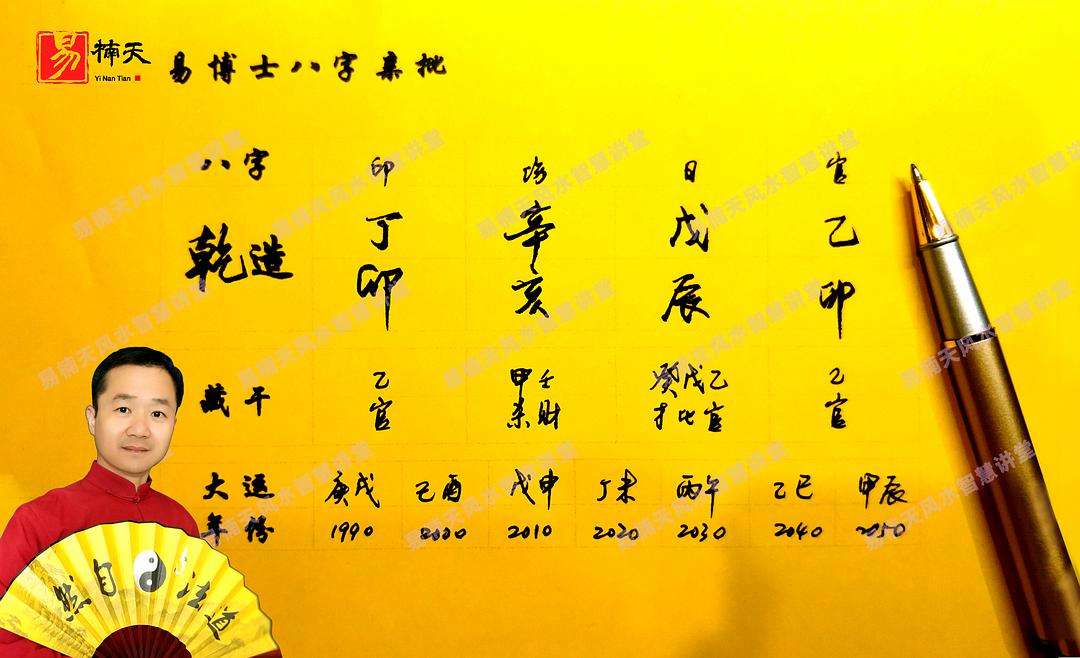 易 楠天 Yi Nan Tian
易博士八字批
八字 印 伤 日 官
乾造 丁 辛 戊 乙
卯 亥 辰 卯
藏干 乙 甲壬 癸戊乙 乙
官 杀财 才比官 官
大运 庚戌 己酉 戊申 丁未 丙午 乙巳 甲辰
年份 1990 2000 2010 2020 2030 2040 2050
然自法道
易楠天风水智慧讲堂